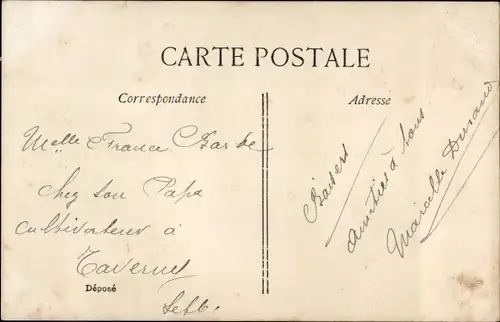 CARTE POSTALE
Correspondance
Adresse
Melle France Barde
chez son Papa
cultivateur à
Taverny
Déposé
Baisers
Amitiés à tous
Marcelle Durand